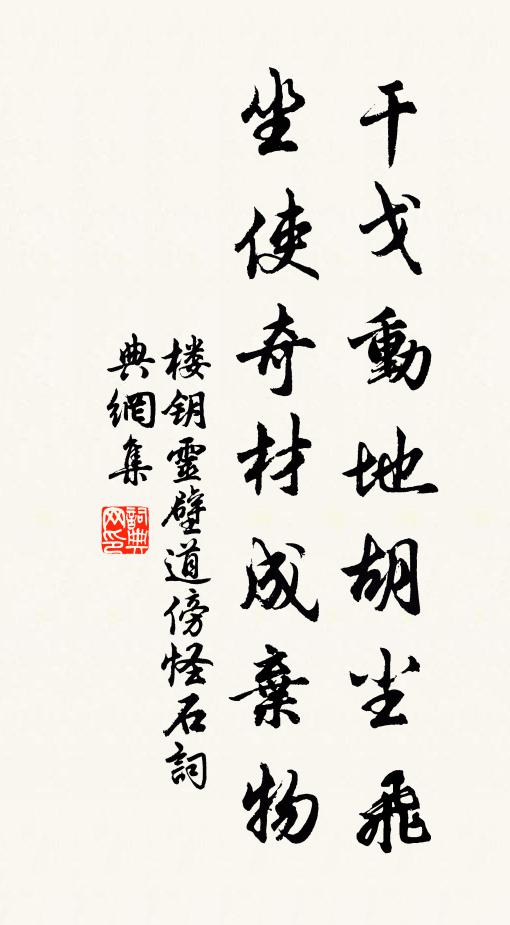 干戈動地胡尘飛
坐使奇材成棄物
楼钥靈壁道傍怪石詞
典網集
詞典
网印